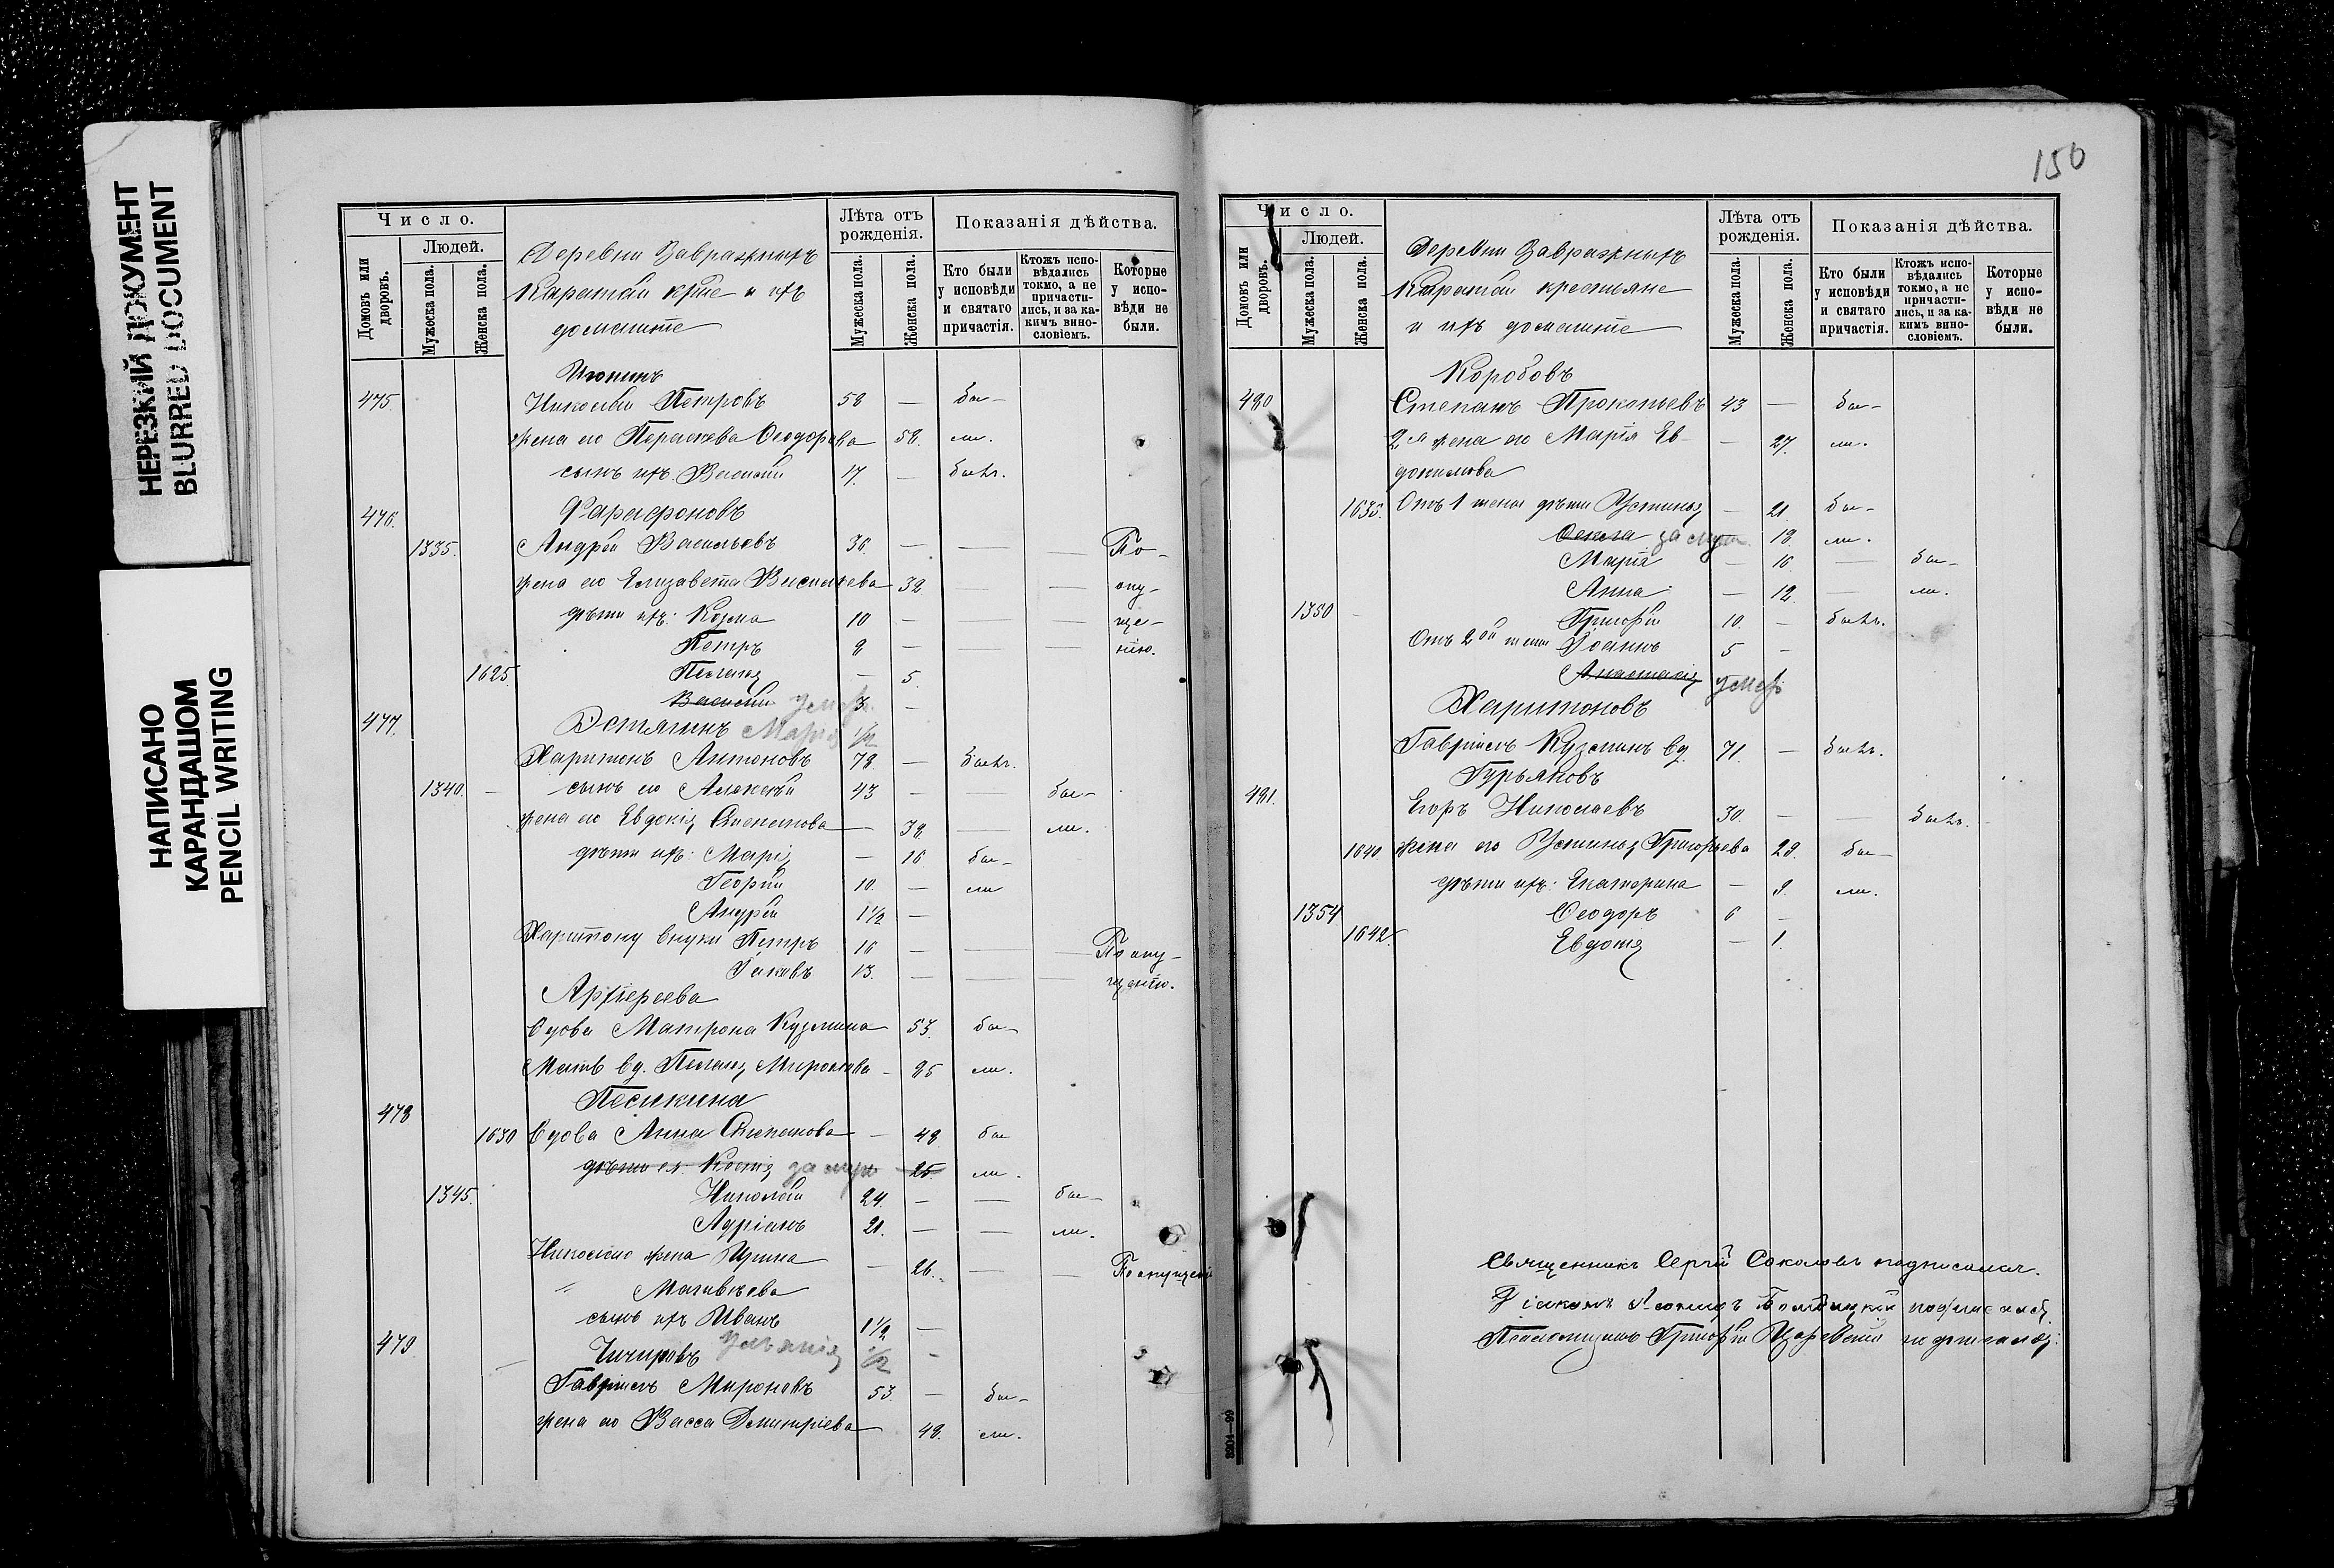 НЕРЕЗКИЙ ДОКУМЕНТ
BLURRED DOCUMENT
НАПИСАНО
КАРАНДАШОМ
PENCIL WRITING
Число.
Домовъ или дворовъ.
Людей.
Мужеска пола.
Женска пола.
Деревни Завражныхъ
Каратай кр̃не и ихъ
домашнiе
Лѣта отъ рожденiя.
Мужеска пола.
Женска пола.
Показанiя дѣйства.
Кто были у исповѣди и святаго причастiя.
Ктожъ исповѣдались токмо, а не причастились, и за какимъ винословiемъ.
Которые у исповѣди не были.
475. Николай Петровъ 58 — бы-
жена его Параскева Ѳеодорова 58. ли.
сынъ ихъ Василiй 17. — былъ.
476. Фарафоновъ
1335. Андрей Васильевъ 36. — — — По-
жена его Елизавета Васильева 32. — — опу-
дѣти ихъ: Козма 10 — — — ще-
Петръ 8 — — — нiю.
1625. Пелагiя — 5.
Василiй умеръ 3 —
477. Марiя 1/2
Харитонъ Антоновъ 78. — былъ.
1340. — сынъ его Алексѣй 43 — — бы-
жена его Евдокiя Степанова — 38. — ли.
дѣти ихъ: Марiя — 16 бы-
Георгiй 10. — ли
Андрей 1 1/2 —
Харитону внуки Петръ 16 — — — По опу-
Iаковъ 13. — — — щенiю.
Архiереева
Вдова Матрона Кузмина 53. бы-
Мать вд. Пелагiя Миронова - 85 ли.
478
1630 Вдова Анна Степанова — 48 бы
дѣти ея: за муж 25. ли.
1345. Николай 24. — — бы-
Адрiанъ 21. — — ли.
Николаю жена Ирина — 26. — — По опущенiю
Матвѣева
сынъ ихъ Иванъ 1 1/2 —
479. Чичировъ 1/2 -
Гаврiилъ Мироновъ 53. — бы-
жена его Васса Димитрiева 48. ли.
150
Число.
Домовъ или дворовъ.
Людей.
Мужеска пола.
Женска пола.
Деревни Завражныхъ
Каратай крестьяне
и ихъ домашнiе
Лѣта отъ рожденiя.
Мужеска пола.
Женска пола.
Показанiя дѣйства.
Кто были у исповѣди и святаго причастiя.
Ктожъ исповѣдались токмо, а не причастились, и за какимъ винословiемъ.
Которые у исповѣди не были.
Коробовъ
480 Степанъ Прокопьевъ 43 — бы-
2я жена его Марiя Ев- — 27. ли.
докимова
1635. Отъ 1 жены дѣти Устинья — 21. бы-
Ѳекла за муж 18. ли.
Марiя — 16 — бы-
Анна — 12. — ли.
1350 - Григорiй 10. - былъ.
Отъ 2ой жены Iоаннъ 5 -
Анастасiя умер
Харитоновъ
Гаврiилъ Кузминъ вд. 71. — былъ.
Гурьяновъ
481. Егоръ Николаевъ 30. — — былъ.
1640. жена его Устинья Григорьева 28. бы-
дѣти ихъ: Екатерина — 9. ли.
1354 Ѳеодоръ 6 —
1642. Евдокiя — 1.
Священникъ Сергiй Соколовъ подписался.
Дiаконъ Леонидъ подписался
Псаломщикъ Григорiй подписался.
3304—99